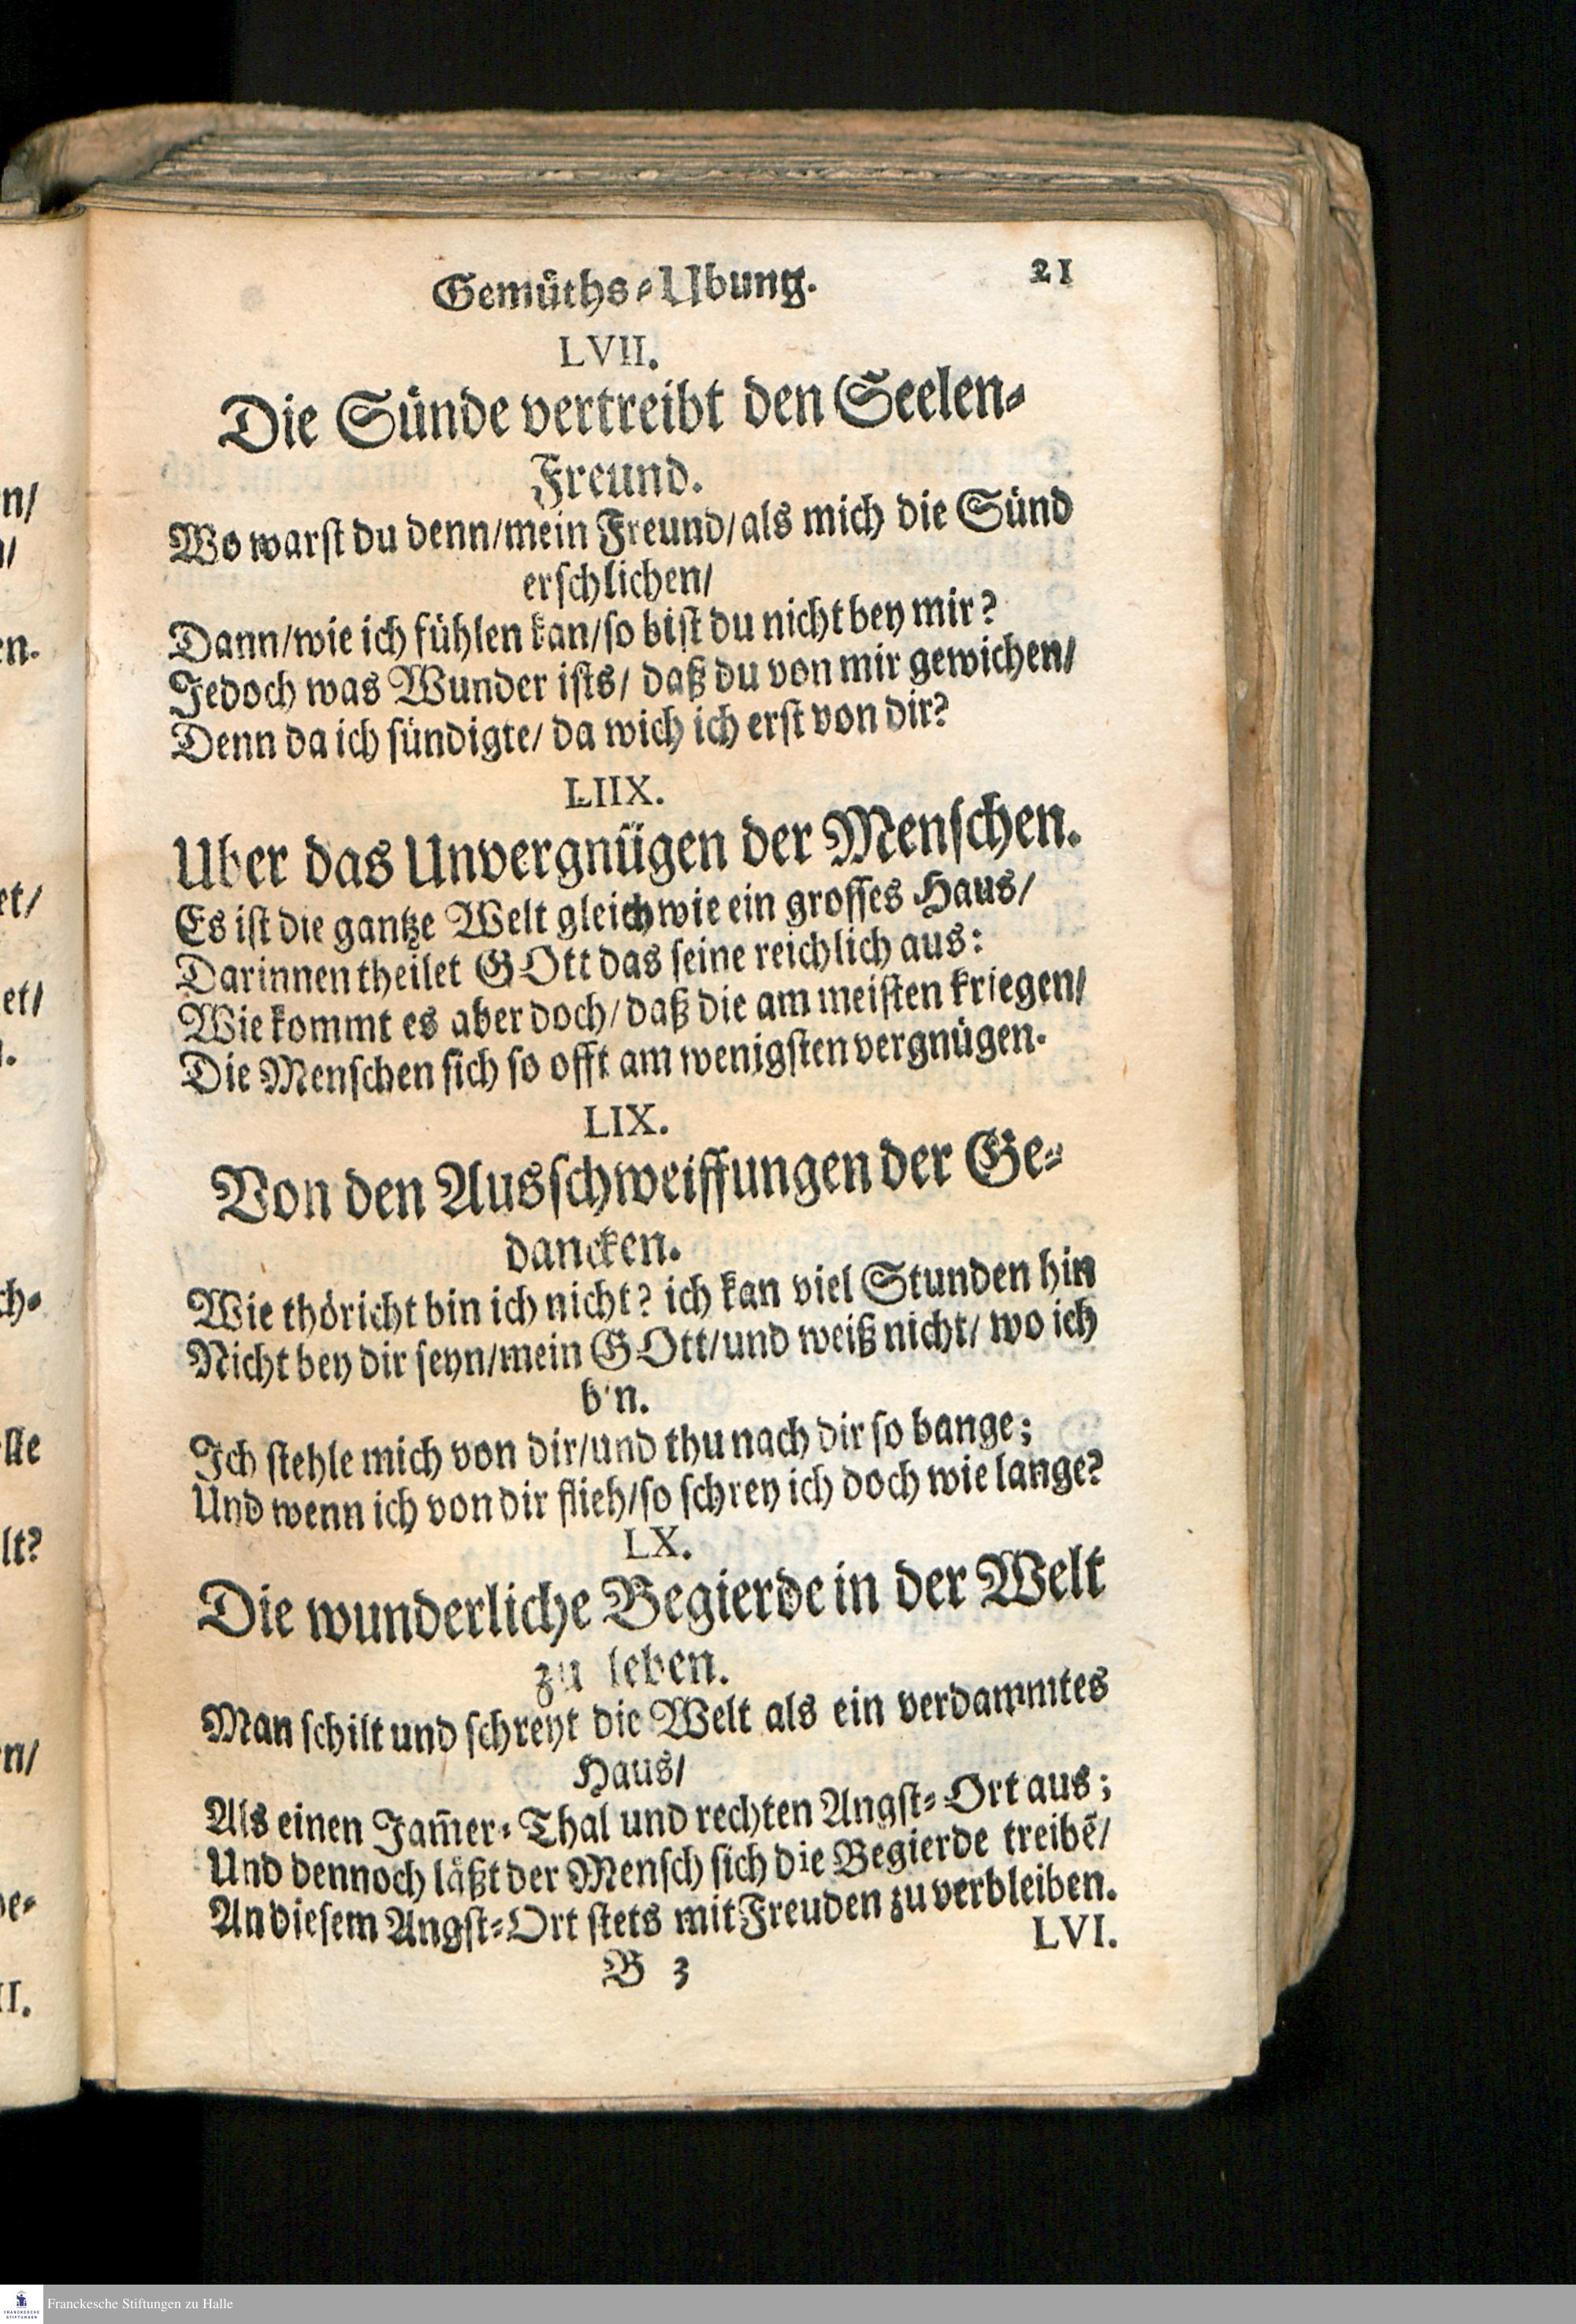 Gemüths-Ubung. 21
LVII.
Die Sünde vertreibt den Seelen-
Freund.
Wo warst du denn/mein Freund/als mich die Sünd
erschlichen/
Dann/wie ich fühlen kan/so bist du nicht bey mir?
Jedoch was Wunder ists/ daß du von mir gewichen/
Denn da ich sündigte/ da wich ich erst von dir?
LIIX.
Uber das Unvergnügen der Menschen.
Es ist die gantze Welt gleich wie ein grosses Haus/
Darinnen theilet GOtt das seine reichlich aus:
Wie kommt es aber doch/ daß die am meisten kriegen/
Die Menschen sich so offt am wenigsten vergnügen.
LIX.
Von den Ausschweiffungen der Ge-
dancken.
Wie thöricht bin ich nicht? ich kan viel Stunden hin
Nicht bey dir seyn/mein GOtt/und weiß nicht/ wo ich
b'n.
Ich stehle mich von dir/und thu nach dir so bange;
Und wenn ich von dir flieh/so schrey ich doch wie lange?
LX.
Die wunderliche Begierde in der Welt
zu leben.
Man schilt und schreyt die Welt als ein verdammtes
Haus/
Als einen Jam̃er-Thal und rechten Angst-Ort aus;
Und dennoch läßt der Mensch sich die Begierde treibẽ/
An diesem Angst-Ort stets mit Freuden zu verbleiben.
LVI.
B 3
n/
en.
et/
et/
ch-
lle
lt?
en/
II.
Franckesche Stiftungen zu Halle